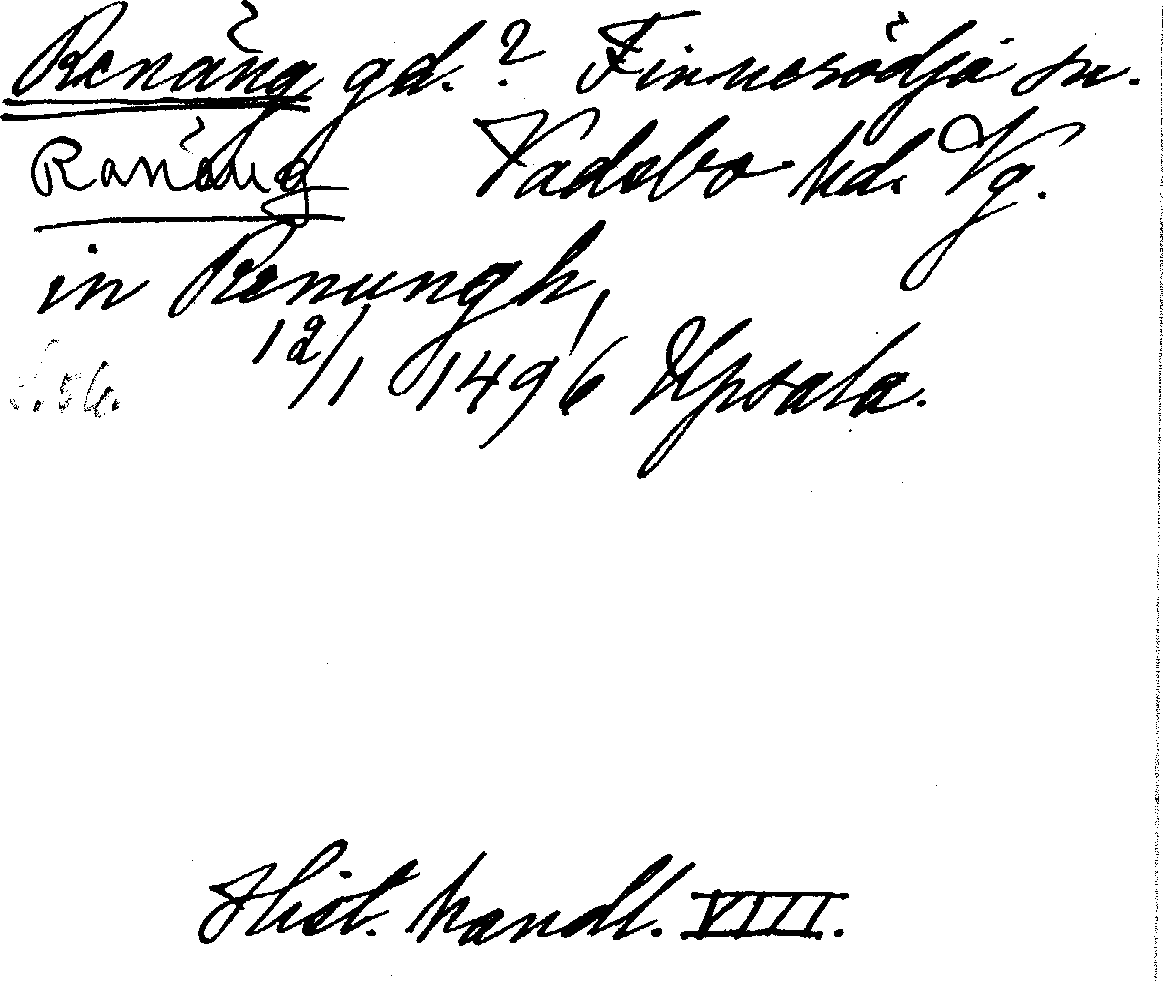 Renäng gd.? Finnerödja sn.
Ranäng Vadsbo hd. Vg.
in Renungh,
12/1 1496 Upsala.
s. 56.
Hist. handl. VIII.